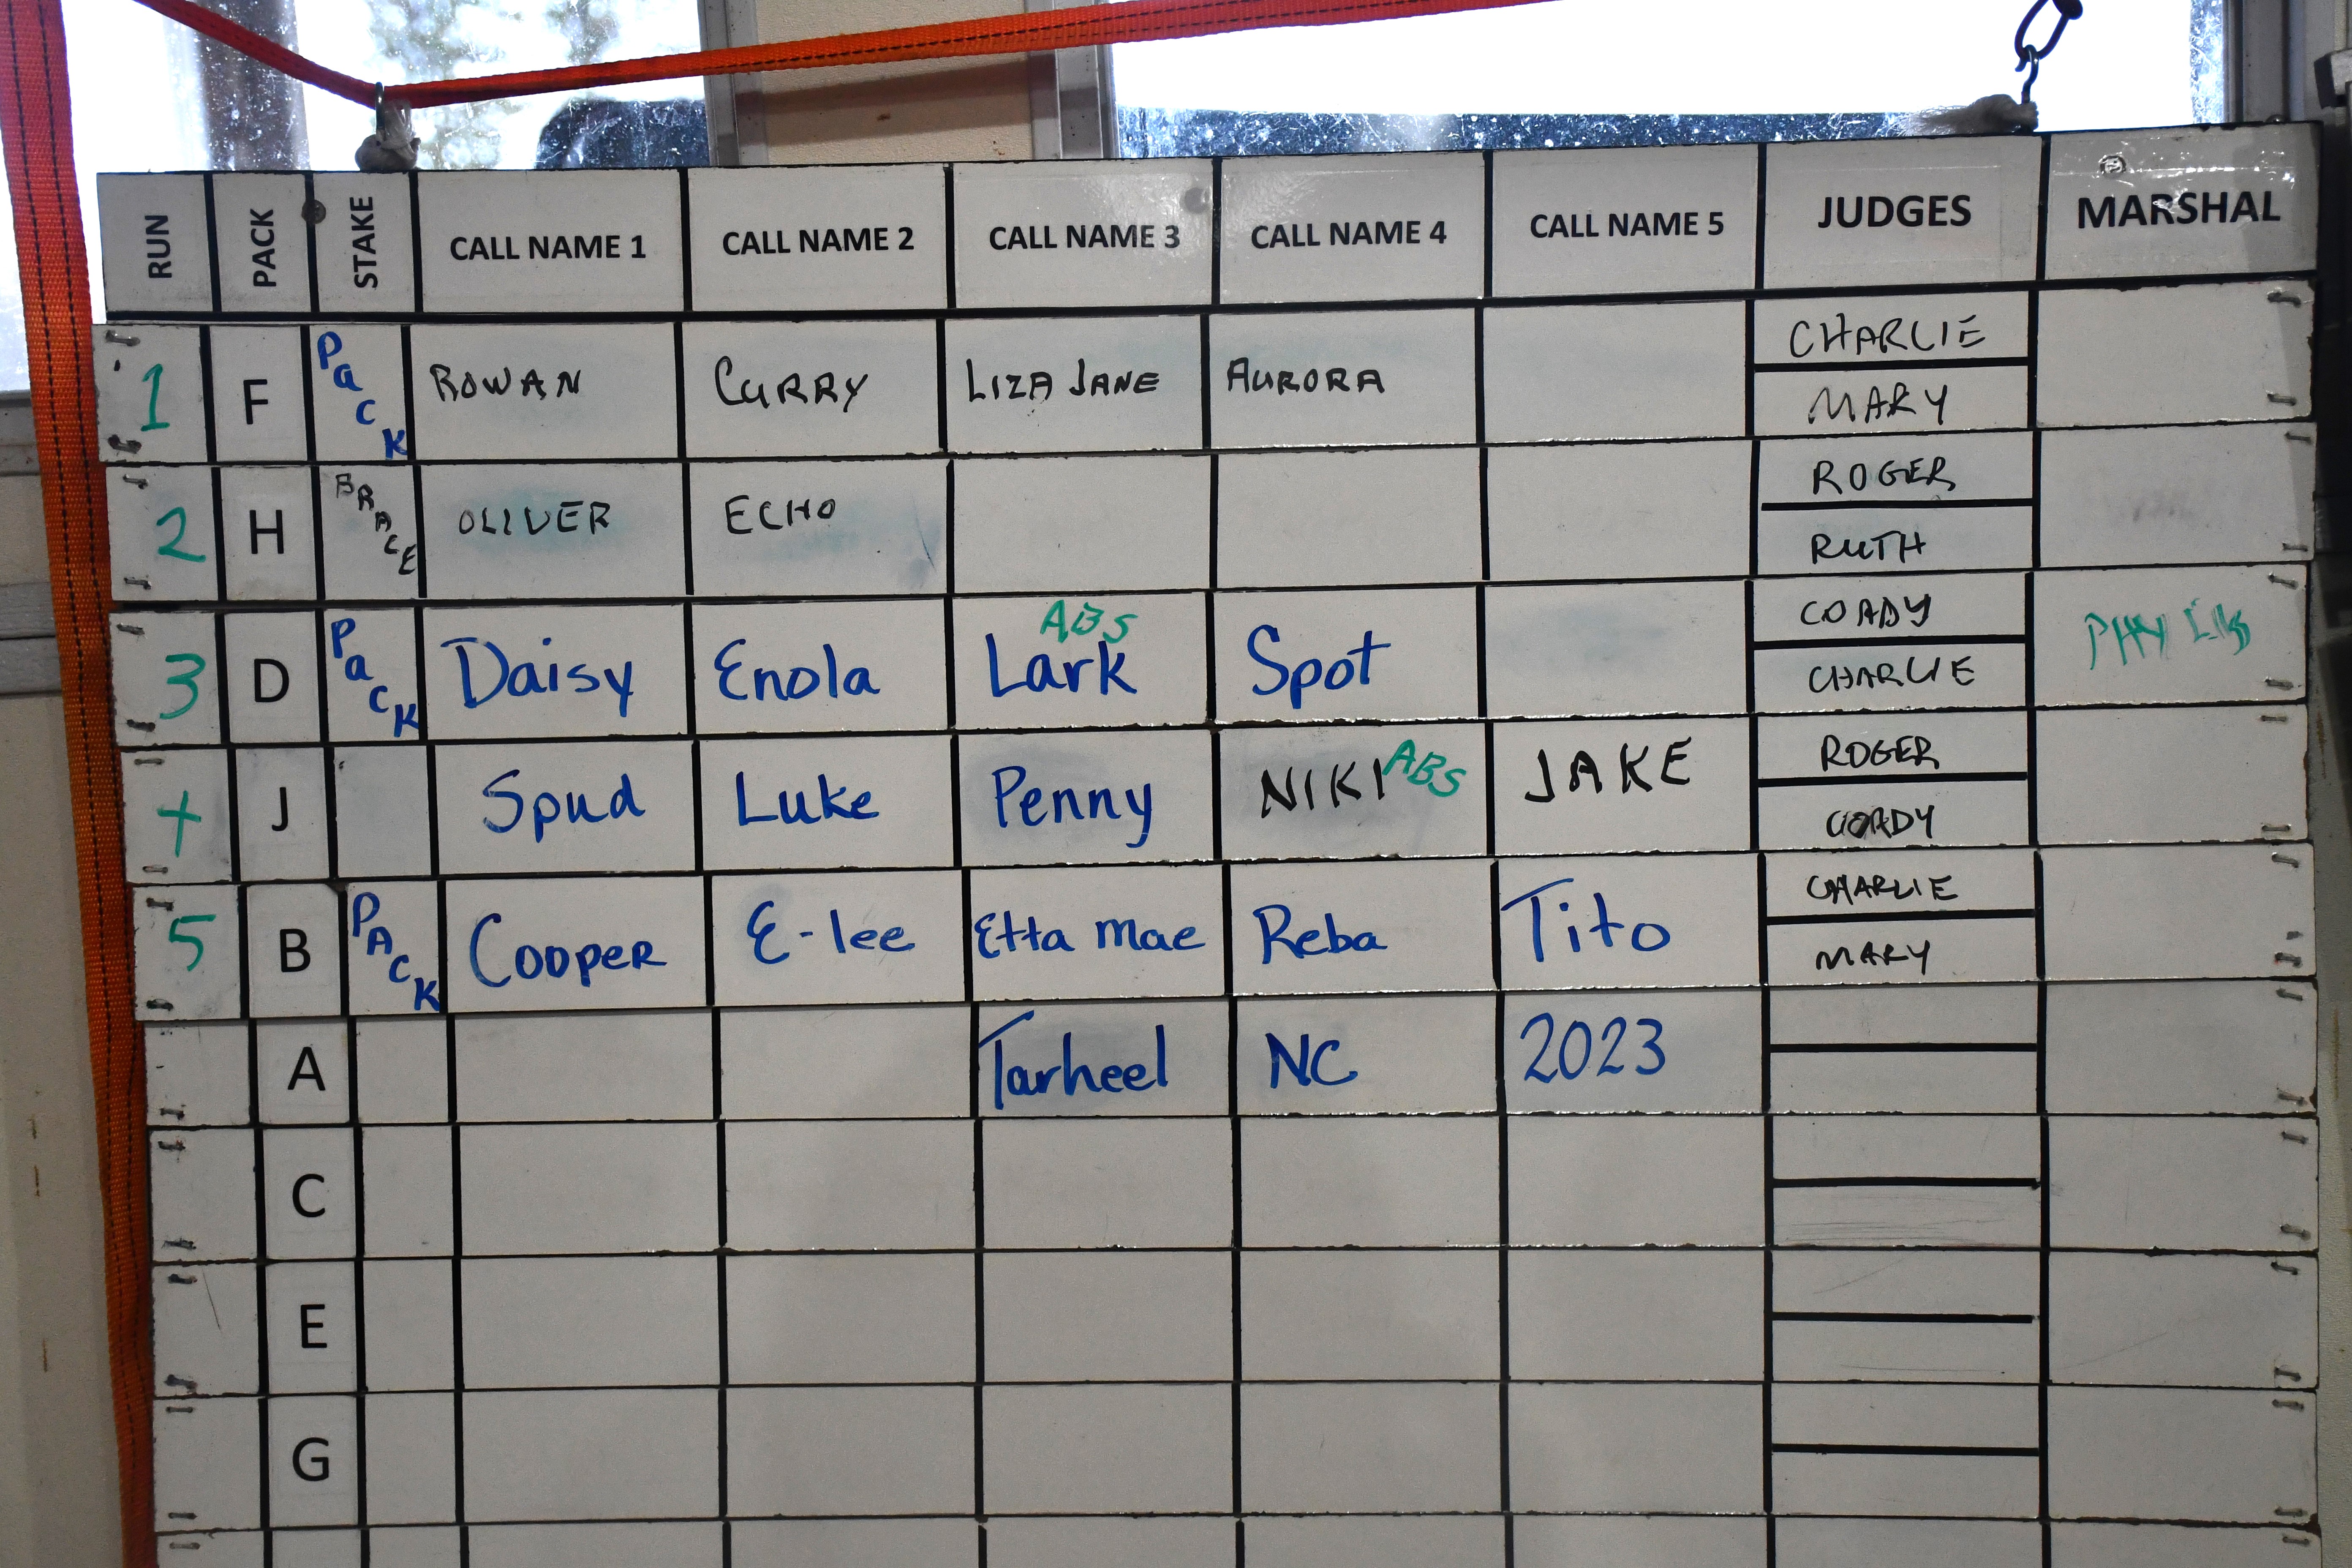 RUN PACK STAKE CALL NAME 1 CALL NAME 2 CALL NAME 3 CALL NAME 4 CALL NAME 5 JUDGES MARSHAL
1 F Pack ROWAN CURRY LIZA JANE AURORA CHARLIE
MARY
2 H BRACE OLIVER ECHO ROGER
RUTH
ABS
3 D Pack Daisy Enola Lark Spot COADY
CHARLIE
4 J Spud Luke Penny NIKI ABS JAKE ROGER
CORDY
5 B PACK Cooper E-lee Etta Mae Reba Tito CHARLIE
MARY
A Tarheel NC 2023
C
E
G